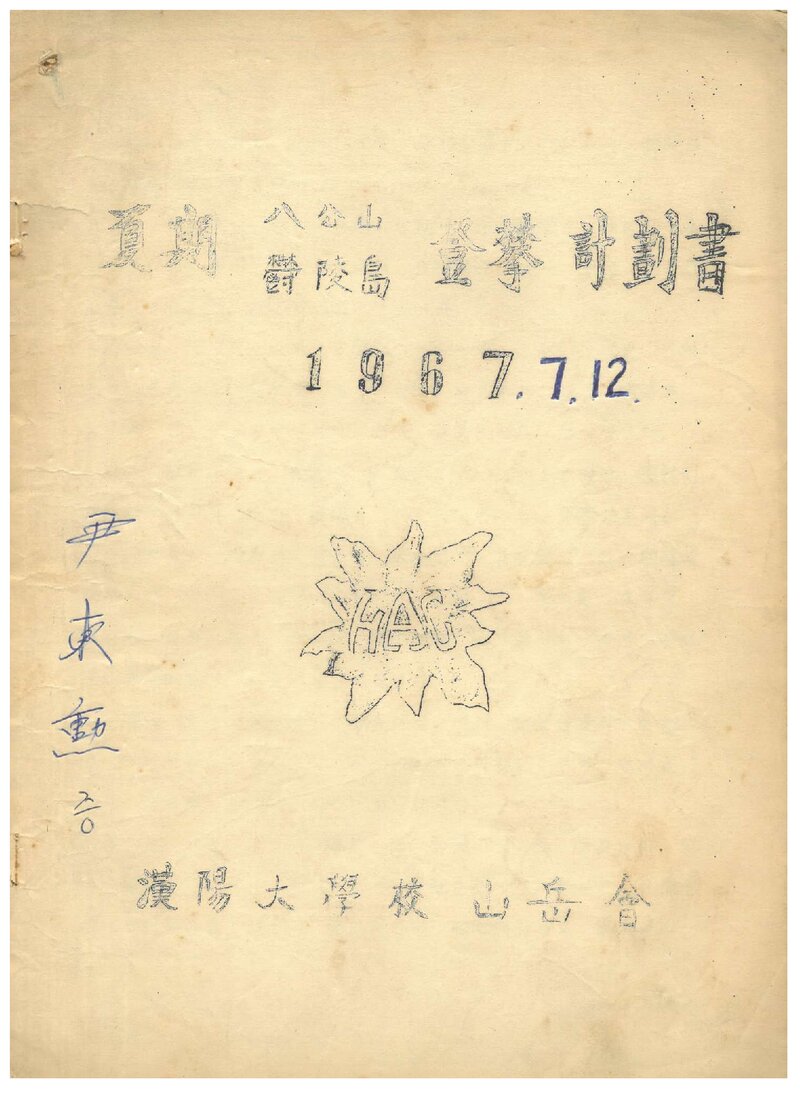 夏期 八公山 鬱陵島 登攀 計劃書
1967.7.12.
HAC
尹東勳 증
漢陽大學校 山岳會